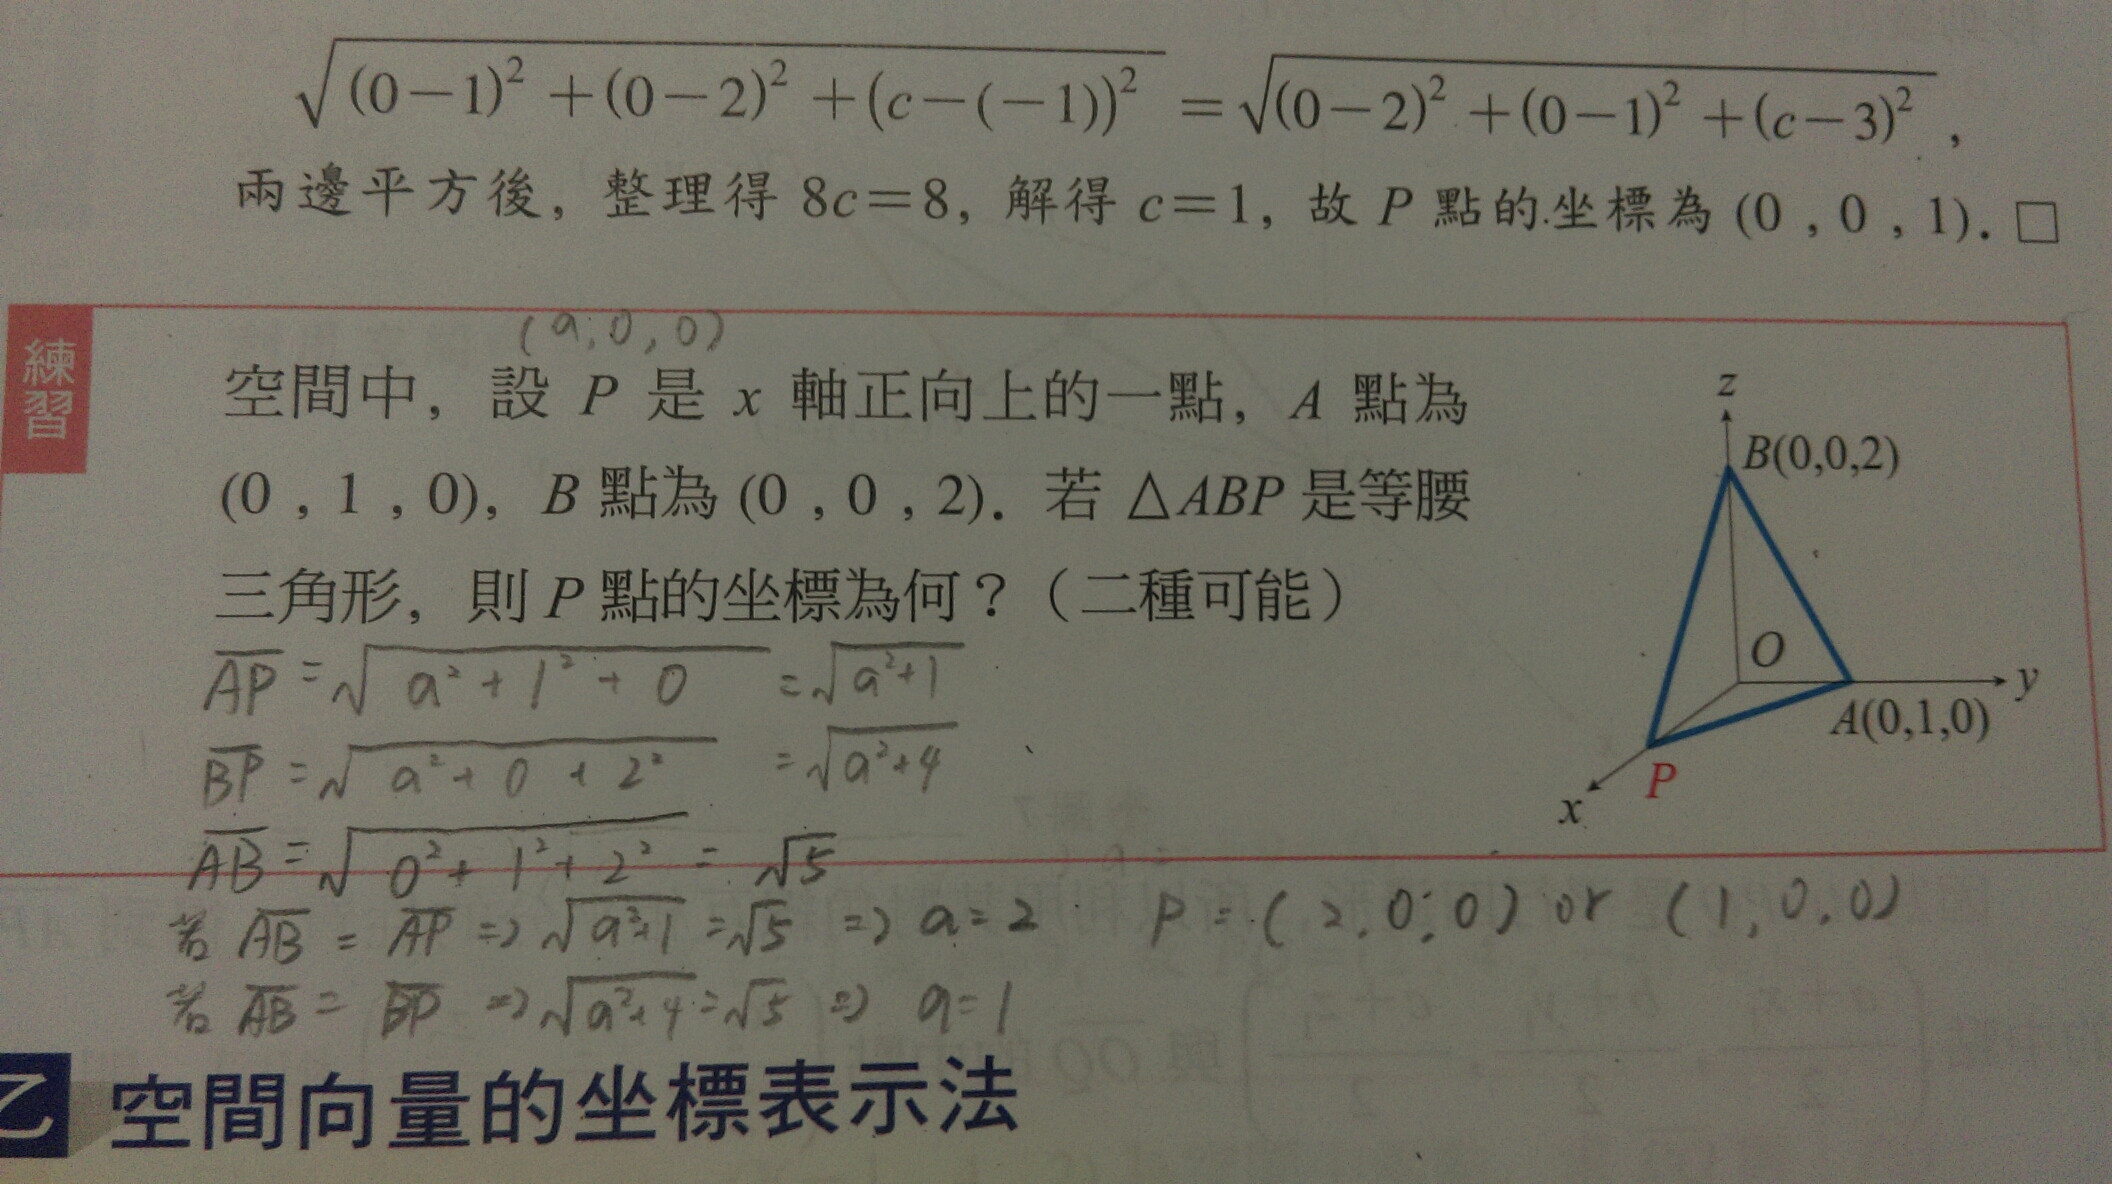 √((0−1)²+(0−2)²+(c−(−1))²) = √((0−2)²+(0−1)²+(c−3)²) ,
兩邊平方後, 整理得 8c=8, 解得 c=1, 故 P 點的坐標為 (0 , 0 , 1). □
練習
(a, 0, 0)
空間中, 設 P 是 x 軸正向上的一點, A 點為
(0 , 1 , 0), B 點為 (0 , 0 , 2). 若 △ABP 是等腰
三角形, 則 P 點的坐標為何？（二種可能）
z
B(0,0,2)
O
y
A(0,1,0)
P
x
A̅P̅ = √(a²+1²+0) = √(a²+1)
B̅P̅ = √(a²+0+2²) = √(a²+4)
A̅B̅ = √(0²+1²+2²) = √5
若 A̅B̅ = A̅P̅ ⇒ √(a²+1) = √5 ⇒ a=2 P=(2,0,0) or (1,0,0)
若 A̅B̅ = B̅P̅ ⇒ √(a²+4) = √5 ⇒ a=1
乙 空間向量的坐標表示法